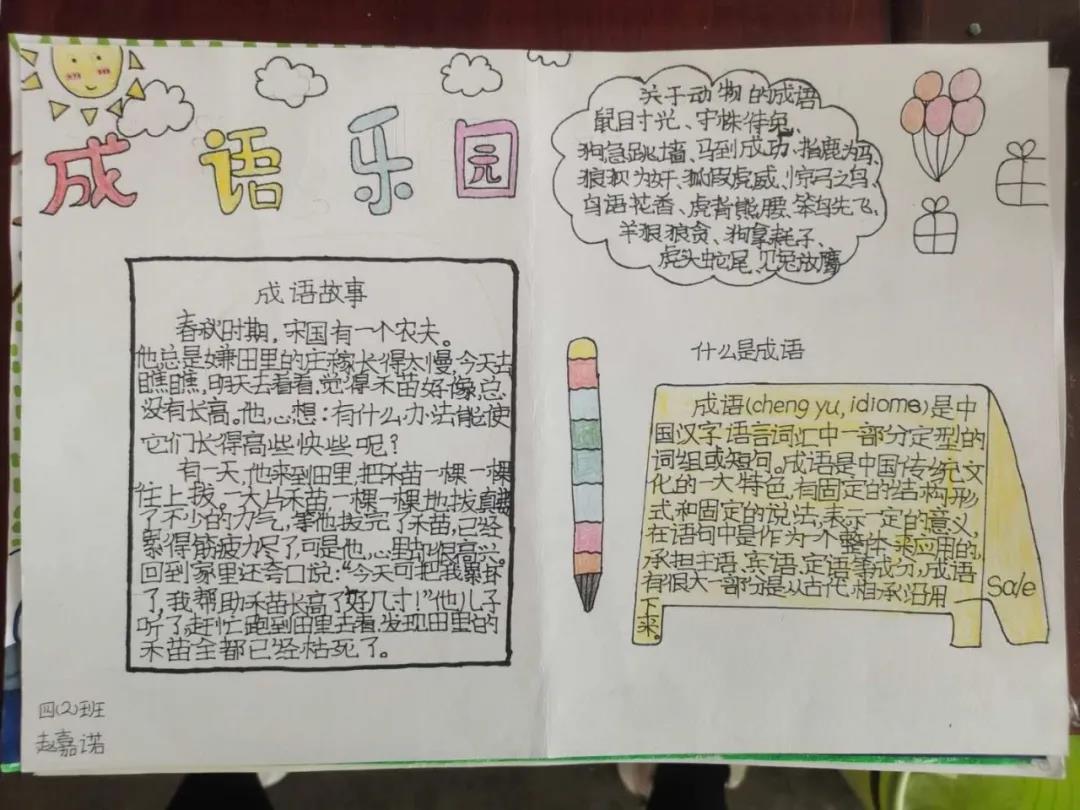 成语乐园
成语故事
春秋时期，宋国有一个农夫。
他总是嫌田里的庄稼长得太慢，今天去
瞧瞧，明天去看看，觉得禾苗好像总
没有长高。他心想：有什么办法能使
它们长得高些快些呢？
有一天，他来到田里，把禾苗一棵一棵
往上拔。一大片禾苗，一棵一棵地拔，真费
了不少的力气，等他拔完了禾苗，已经
累得筋疲力尽了，可是他心里却很高兴。
回到家里还夸口说：“今天可把我累坏
了，我帮助禾苗长高了好几寸！”他儿子
听了，赶忙跑到田里去看，发现田里的
禾苗全都已经枯死了。
四(2)班
赵嘉诺
关于动物的成语
鼠目寸光、守株待兔、
狗急跳墙、马到成功、指鹿为马、
狼狈为奸、狐假虎威、惊弓之鸟、
鸟语花香、虎背熊腰、笨鸟先飞、
羊狠狼贪、狗拿耗子、
虎头蛇尾、见兔放鹰
什么是成语
成语(cheng yu, idioms)是中
国汉字语言词汇中一部分定型的
词组或短句。成语是中国传统文
化的一大特色，有固定的结构形
式和固定的说法，表示一定的意义，
在语句中是作为一个整体来应用的，
承担主语、宾语、定语等成分，成语
有很大一部分是从古代相承沿用
下来。
Sale